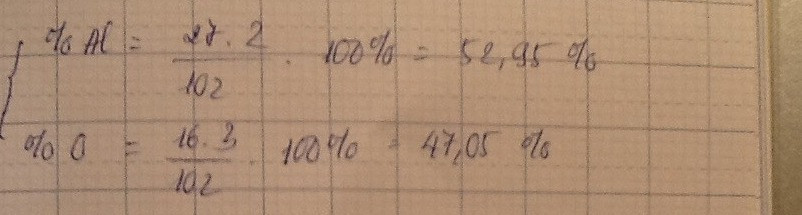 % Al = 27.2 / 102 . 100% = 52,95 %
% O = 16.3 / 102 . 100% = 47,05 %